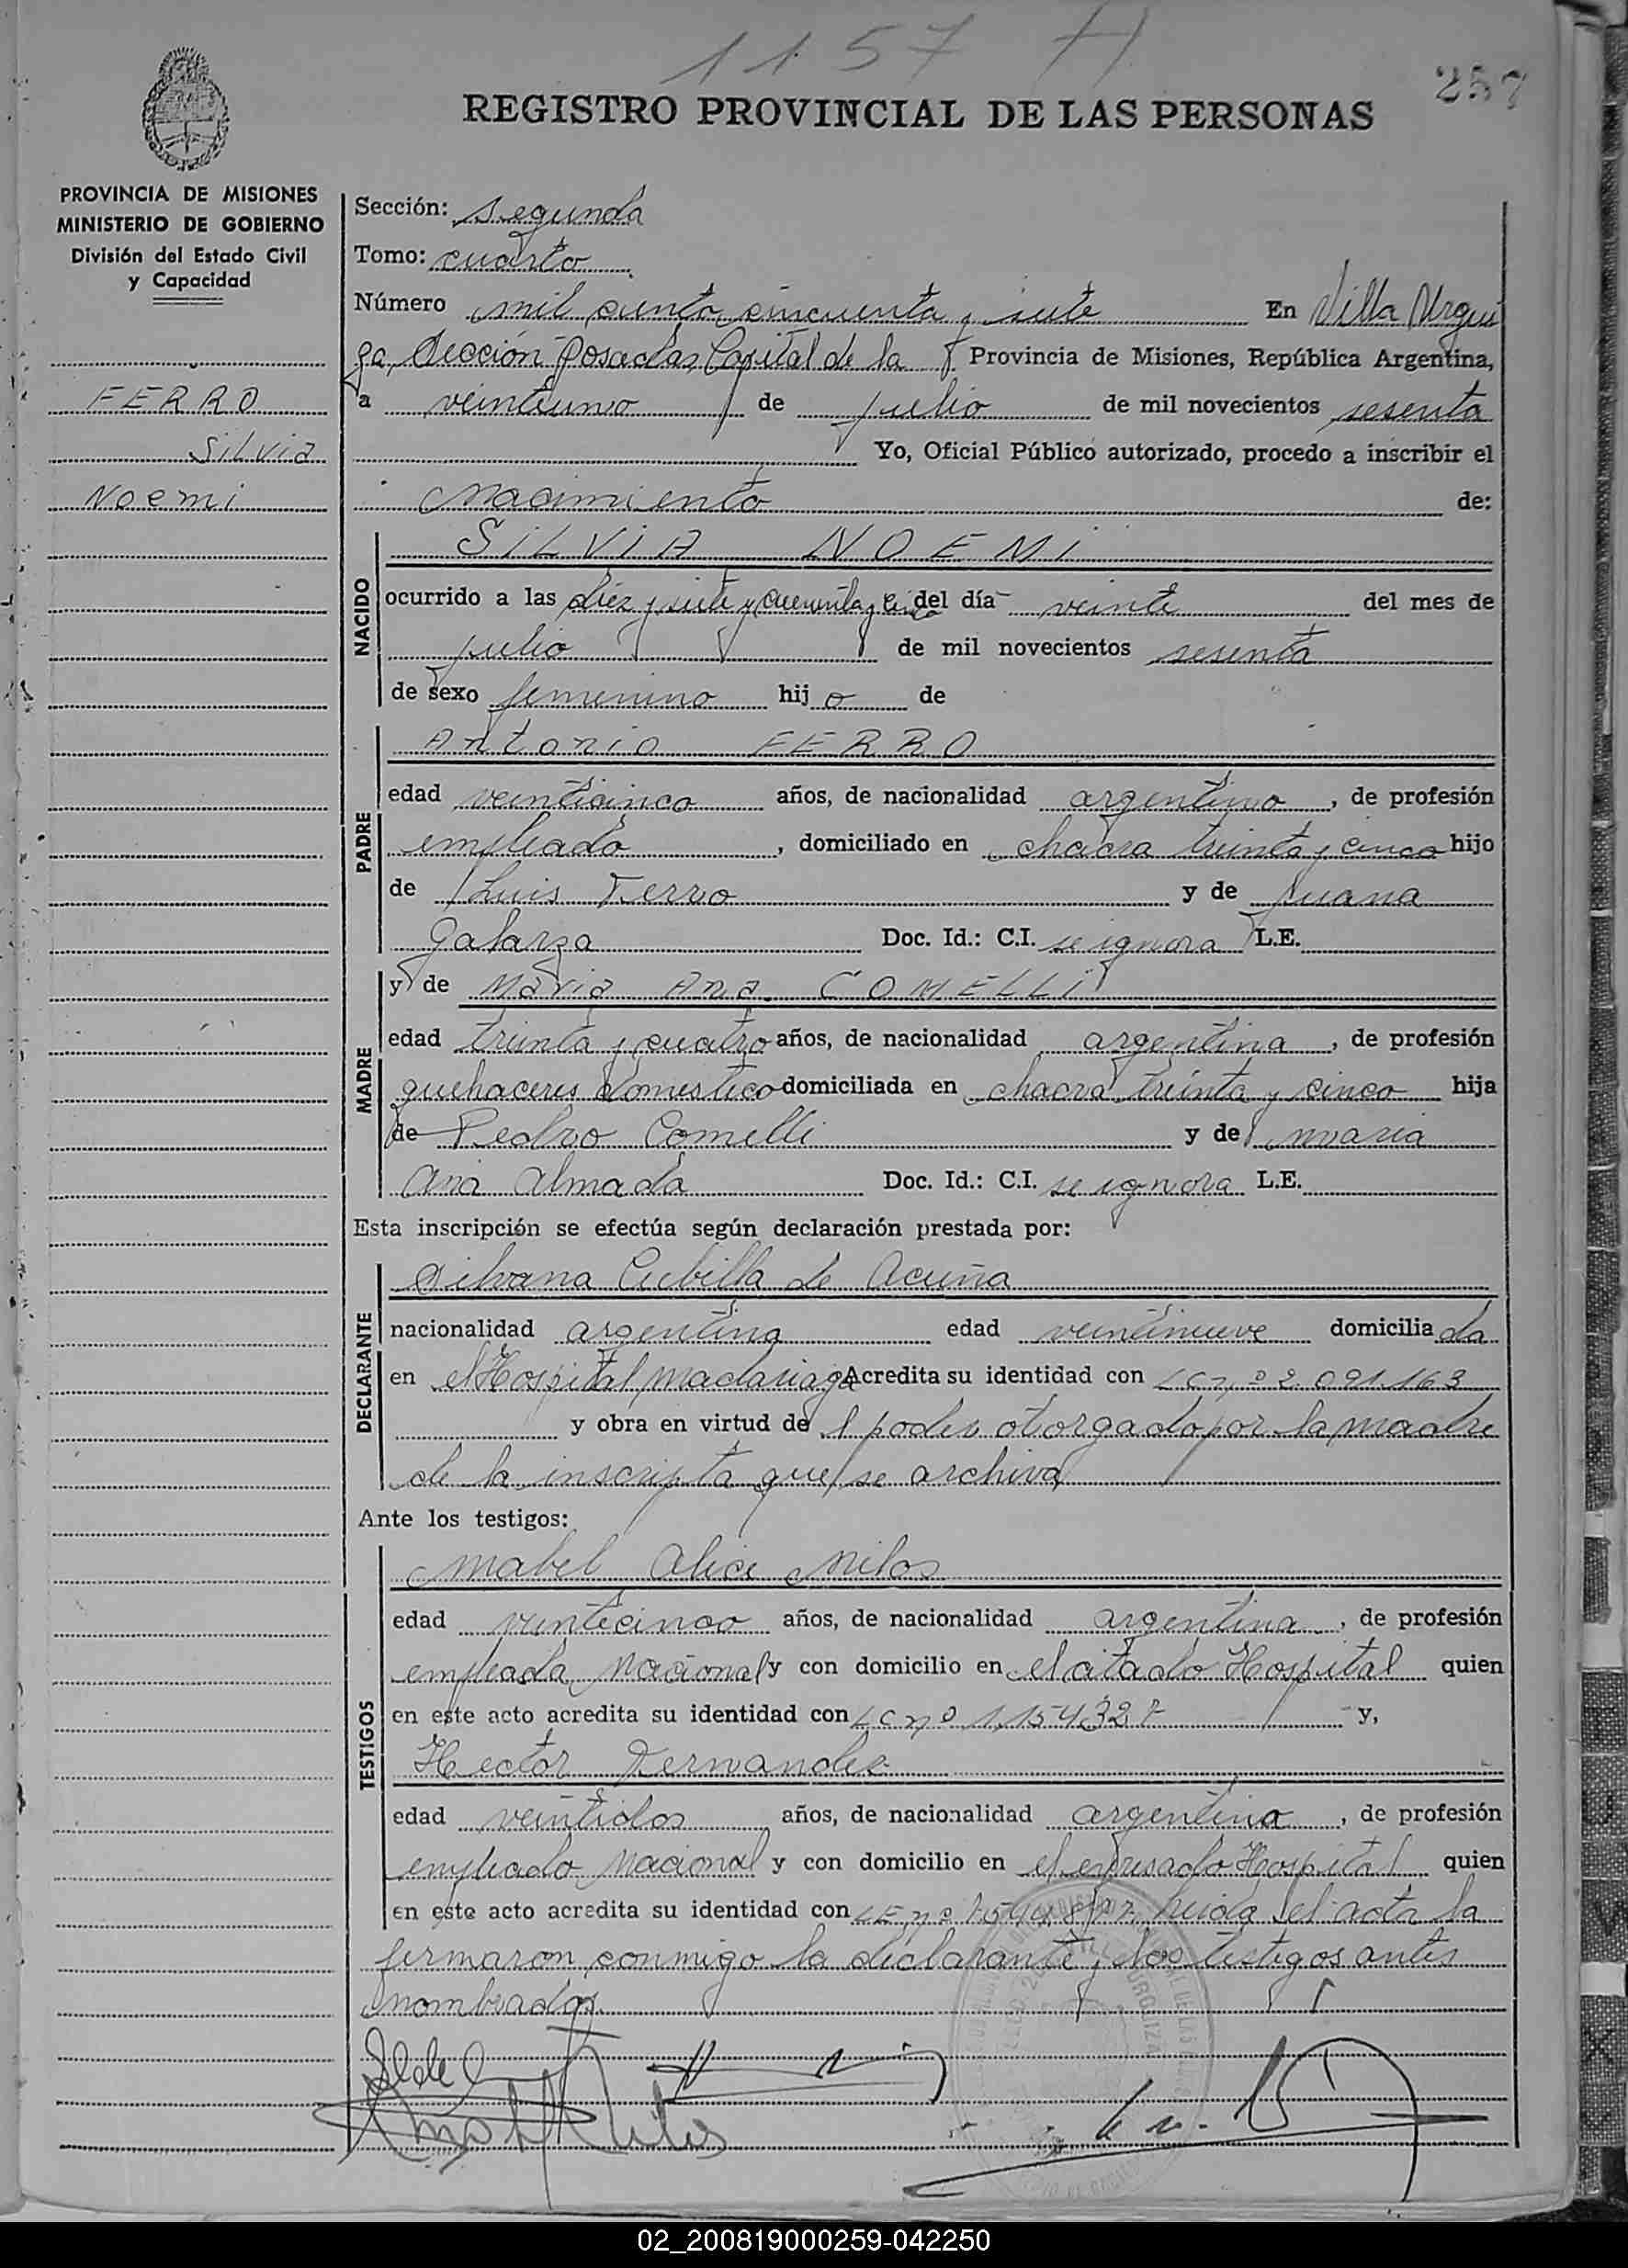 1157 H
257
REGISTRO PROVINCIAL DE LAS PERSONAS
PROVINCIA DE MISIONES
MINISTERIO DE GOBIERNO
División del Estado Civil
y Capacidad
FERRO
Silvia
Noemi
Sección: segunda
Tomo: cuarto
Número mil ciento cincuenta y siete En Villa Urqui
za, Sección Posadas, Capital de la Provincia de Misiones, República Argentina,
a veintiuno de julio de mil novecientos sesenta
Yo, Oficial Público autorizado, procedo a inscribir el
Nacimiento de:
NACIDO
SILVIA NOEMI
ocurrido a las diez y siete y cuarenta y cinco del día veinte del mes de
julio de mil novecientos sesenta
de sexo femenino hijo de
PADRE
Antonio FERRO
edad veinticinco años, de nacionalidad argentino, de profesión
empleado, domiciliado en chacra treinta y cinco hijo
de Luis Ferro y de Juana
Galarza Doc. Id.: C.I. se ignora L.E.
MADRE
y de Maria Ana COMELLI
edad treinta y cuatro años, de nacionalidad argentina, de profesión
quehaceres domestico domiciliada en chacra treinta y cinco hija
de Pedro Comelli y de maria
Ana Almada Doc. Id.: C.I. se ignora L.E.
Esta inscripción se efectúa según declaración prestada por:
DECLARANTE
Silvana Cubilla de Acuña
nacionalidad argentina edad veintinueve domiciliada
en el Hospital Madariaga Acredita su identidad con LC nº 2.091.163
y obra en virtud del poder otorgado por la madre
de la inscripta que se archiva
Ante los testigos:
TESTIGOS
Mabel Alice Milos
edad veinticinco años, de nacionalidad argentina, de profesión
empleada Nacional y con domicilio en el citado Hospital quien
en este acto acredita su identidad con LC nº y,
Hector Fernandez
edad veintidos años, de nacionalidad argentino, de profesión
empleado Nacional y con domicilio en el expresado Hospital quien
en este acto acredita su identidad con LE nº leida el acta la
firmaron conmigo la declarante y los testigos antes
nombrados.
URQUIZA
02_200819000259-042250